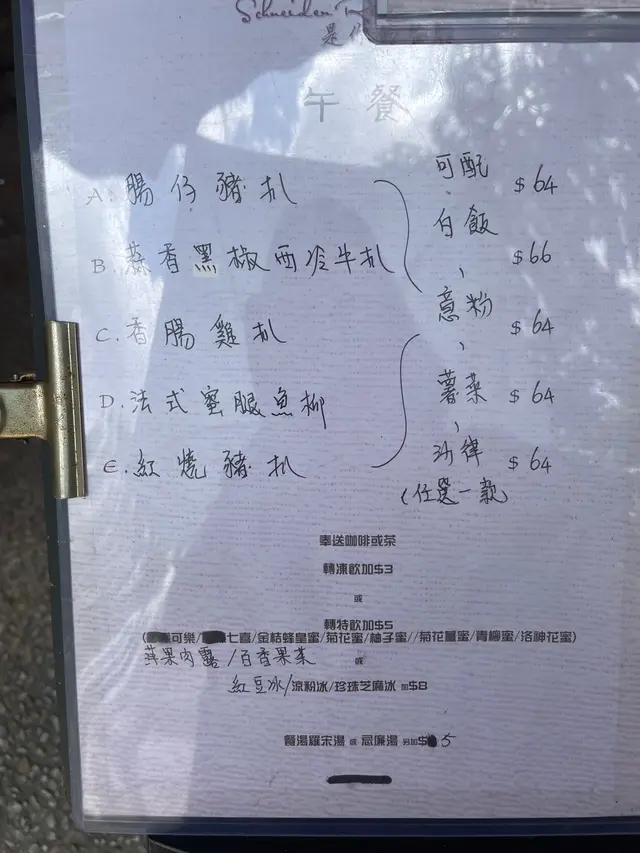 Schneider
是
午餐
A. 腸仔豬扒 $64
B. 蒜香黑椒西冷牛扒 $66
C. 香腸雞扒 $64
D. 法式蜜眼魚柳 $64
E. 紅燒豬扒 $64
可配
白飯、
意粉、
薯菜、
沙律
(任選一款)
奉送咖啡或茶
轉凍飲加$3
或
轉特飲加$5
(可樂/七喜/金桔蜂皇蜜/菊花蜜/柚子蜜//菊花薑蜜/青檸蜜/洛神花蜜)
苹果肉露/百香果茶 或
紅豆冰/涼粉冰/珍珠芝麻冰 加$8
餐湯羅宋湯 或 忌廉湯 另加$5